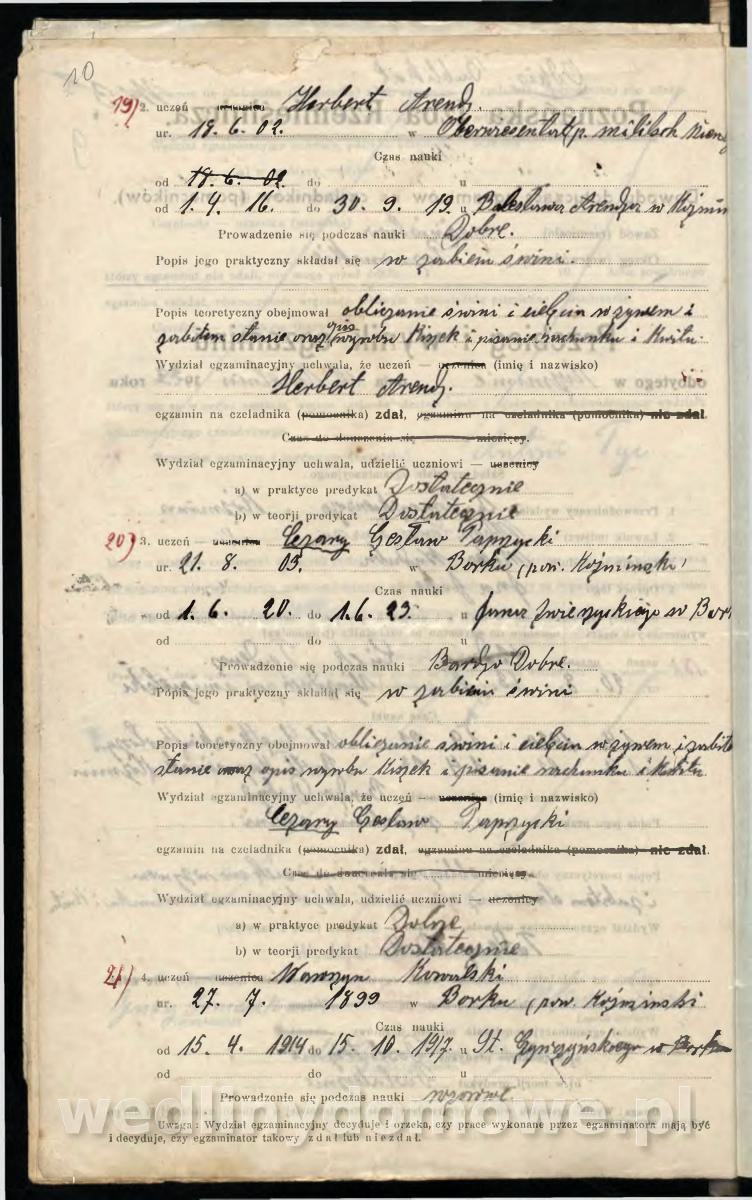 10
19) 2. uczeń uczenica Herbert Arendz.
ur. 18. 6. 02. w
Czas nauki
od 18. 6. 02. do u
od 1. 4. 16. do 30. 9. 19. u Bolesława Arendza w Koźmin
Prowadzenie się podczas nauki Dobre.
Popis jego praktyczny składał się w zabiciu świni.
Popis teoretyczny obejmował obliczanie świni i cielęcia w żywem i
zabitem stanie oraz opis wyrobu kiszek i pisanie rachunku i kwitu.
Wydział egzaminacyjny uchwala, że uczeń — uczenica (imię i nazwisko)
Herbert Arendz.
egzamin na czeladnika (pomocnika) zdał, egzaminu na czeladnika (pomocnika) nie zdał.
Czas do douczenia się miesięcy.
Wydział egzaminacyjny uchwala, udzielić uczniowi — uczenicy
a) w praktyce predykat Dostatecznie
b) w teorji predykat Dostatecznie
20) 3. uczeń — uczenica Cezary Czesław Paprzycki
ur. 21. 8. 03. w Borku, pow. Koźmiński
Czas nauki
od 1. 6. 20. do 1. 6. 23. u w Bor
od do u
Prowadzenie się podczas nauki Bardzo Dobre.
Popis jego praktyczny składał się w zabiciu świni
Popis teoretyczny obejmował obliczanie świni i cielęcia w żywem i zabite
stanie oraz opis wyrobu kiszek i pisanie rachunku i kwitu.
Wydział egzaminacyjny uchwala, że uczeń — uczenica (imię i nazwisko)
Cezary Czesław Paprzycki
egzamin na czeladnika (pomocnika) zdał, egzaminu na czeladnika (pomocnika) nie zdał.
Czas do douczenia się miesięcy.
Wydział egzaminacyjny uchwala, udzielić uczniowi — uczenicy
a) w praktyce predykat Dobrze
b) w teorji predykat Dostatecznie
21) 4. uczeń uczenica Wawrzyn Kowalski
ur. 27. 7. 1899 w Borku, pow. Koźmiński
Czas nauki
od 15. 4. 1914 do 15. 10. 1917. u St. w Borku
od do u
Prowadzenie się podczas nauki wzorowe.
wedlinydomowe.pl
Uwaga: Wydział egzaminacyjny decyduje i orzeka, czy prace wykonane przez egzaminatora mają być
i decyduje, czy egzaminator takowy zdał lub nie zdał.